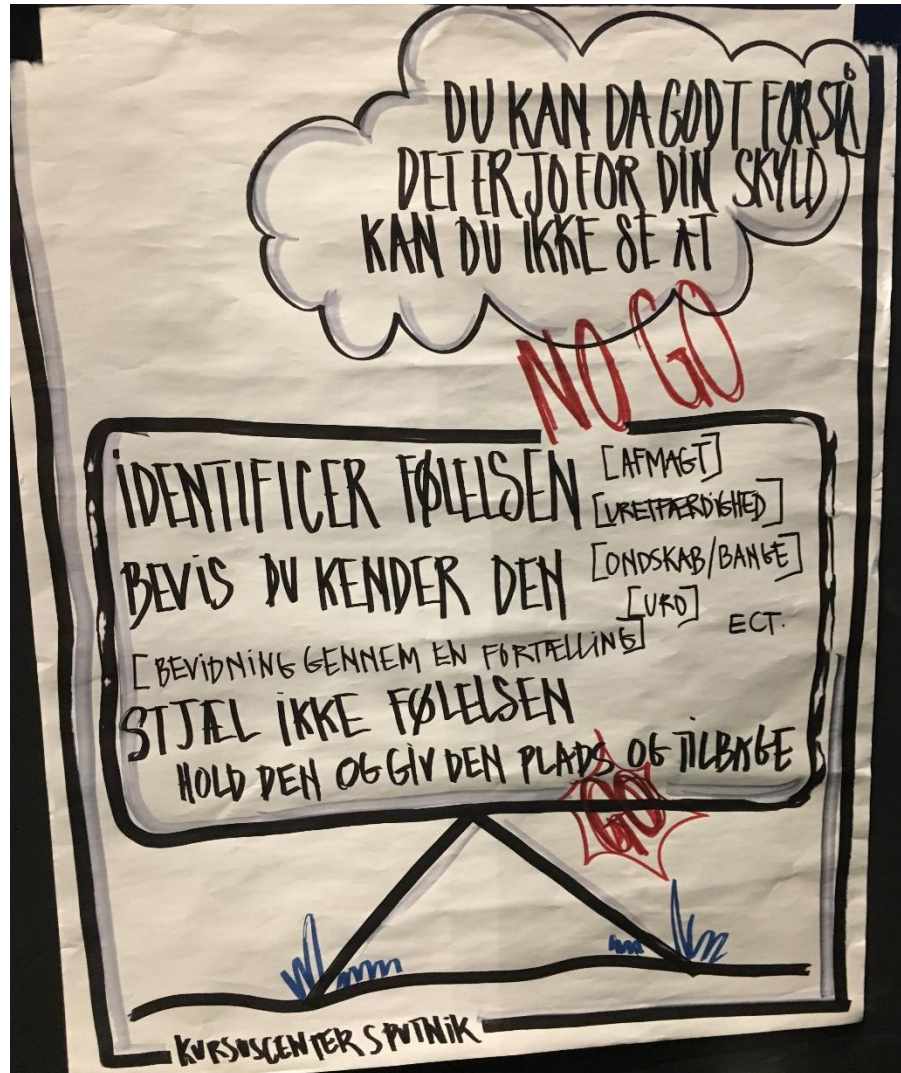 DU KAN DA GODT FORSTÅ
DET ER JO FOR DIN SKYLD
KAN DU IKKE SE AT
NO GO
IDENTIFICER FØLELSEN [AFMAGT]
[URETFÆRDIGHED]
BEVIS DU KENDER DEN [ONDSKAB/BANGE]
[URO] ECT.
[BEVIDNING GENNEM EN FORTÆLLING]
STJÆL IKKE FØLELSEN
HOLD DEN OG GIV DEN PLADS OG TILBAGE
GO
KURSUSCENTER SPUTNIK